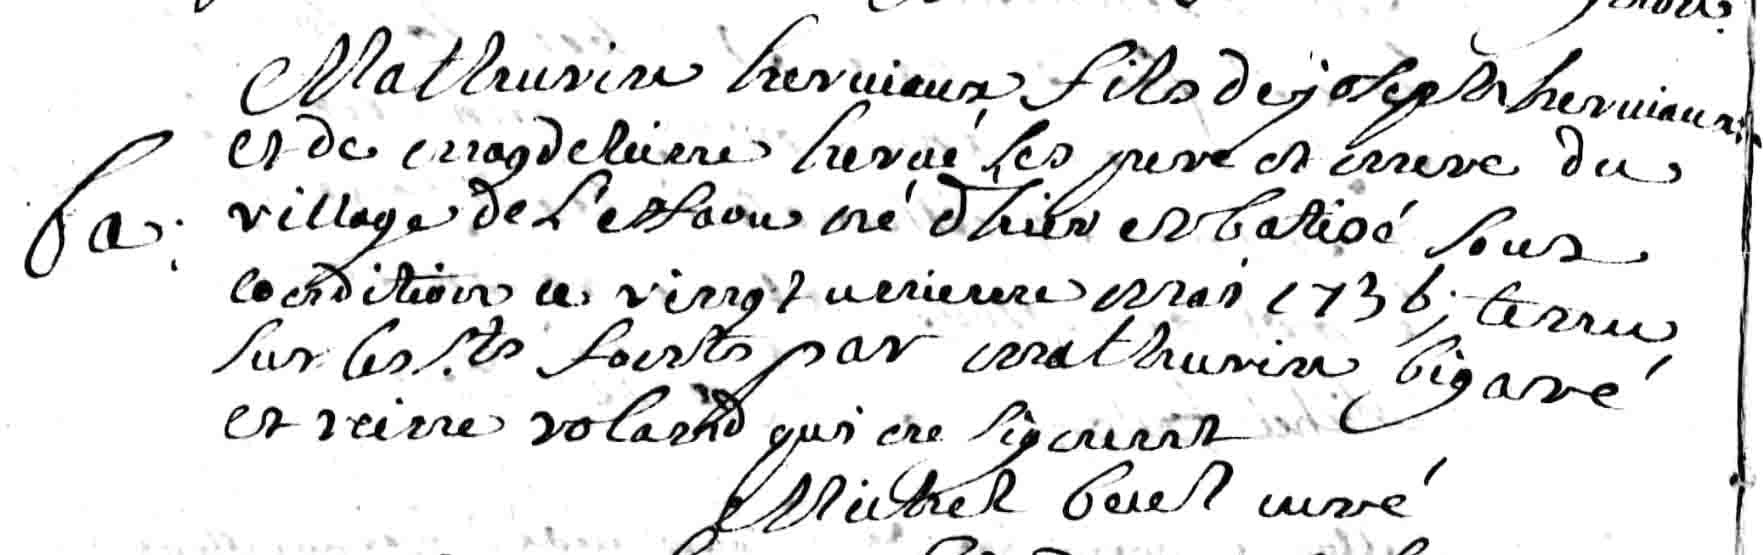 Mathurin herviaux fils de joseph herviaux
et de magdeleine hervé ses pere et mere du
ba: village de né d'hier et batisé sous
condition ce vingt unieme mai 1736; tenu
sur les sts fonts par mathurin bigaré
et reine roland qui ne signent
Michel curé